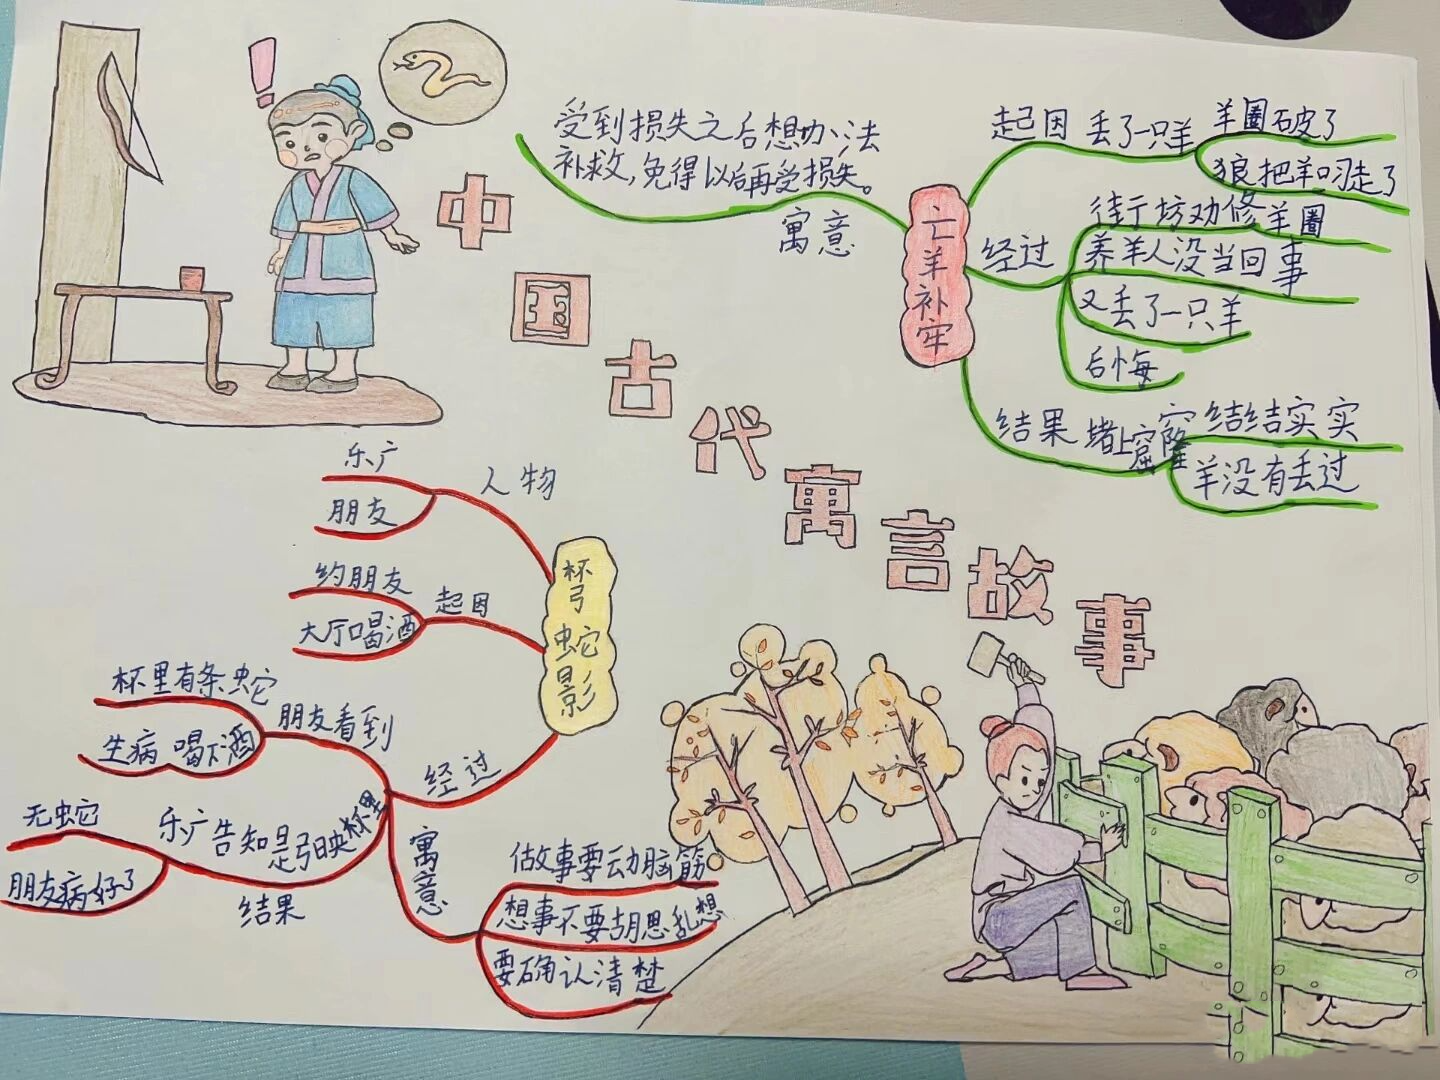 中国古代寓言故事
受到损失之后想办法
补救,免得以后再受损失。
寓意
亡羊补牢
起因
丢了一只羊
羊圈破了
狼把羊叼走了
经过
街坊劝修羊圈
养羊人没当回事
又丢了一只羊
后悔
结果
堵上窟窿
结结实实
羊没有丢过
杯弓蛇影
人物
乐广
朋友
起因
约朋友
大厅喝酒
经过
朋友看到
杯里有条蛇
生病 喝下酒
乐广告知是弓映杯里
结果
无蛇
朋友病好了
寓意
做故事要动脑筋
想事不要胡思乱想
要确认清楚